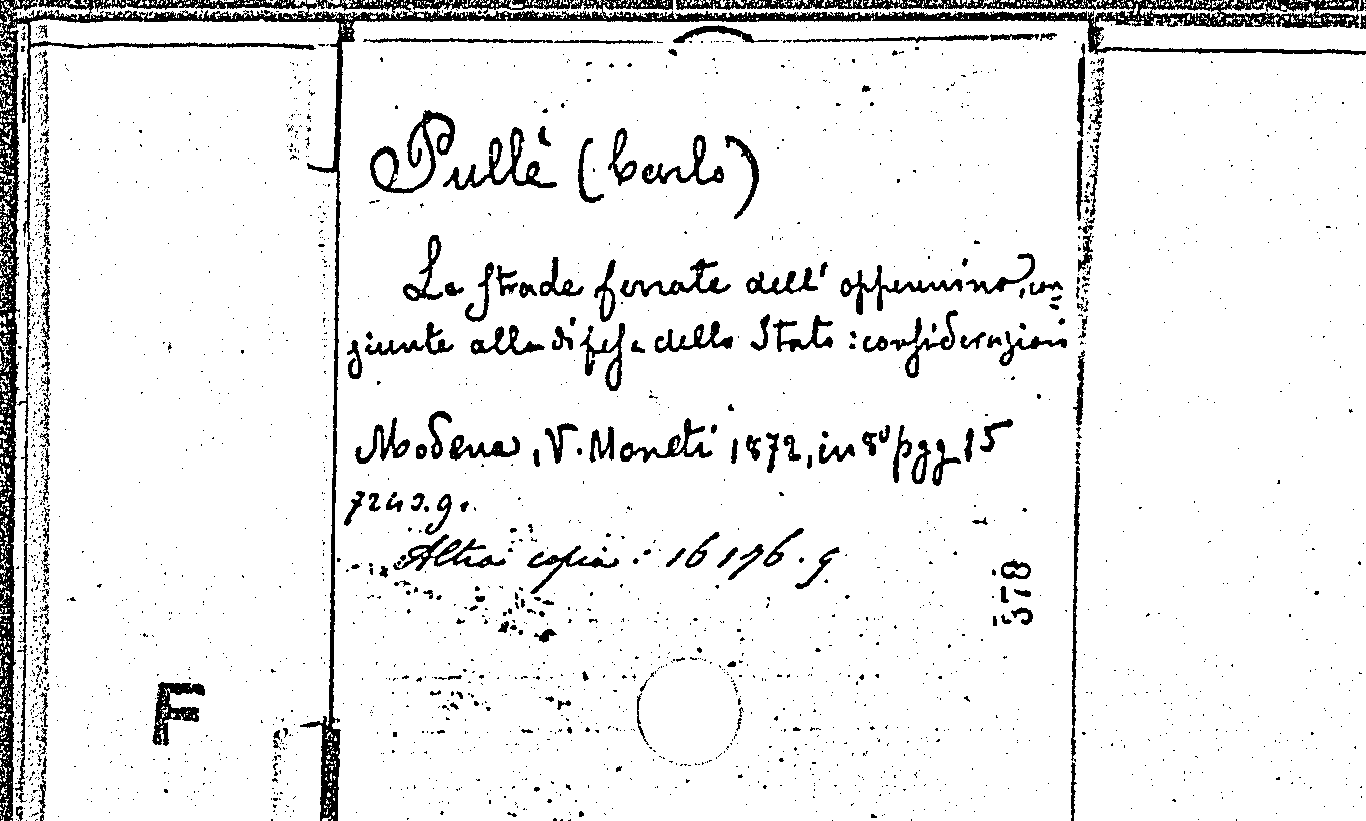 Pullè (Carlo)
Le strade ferrate dell' appennino, con=
giunte alla difesa dello Stato : considerazioni
Modena, V. Moneti 1872, in 8° pgg 15
7243.g.
Altra copia : 16176.g
578
F